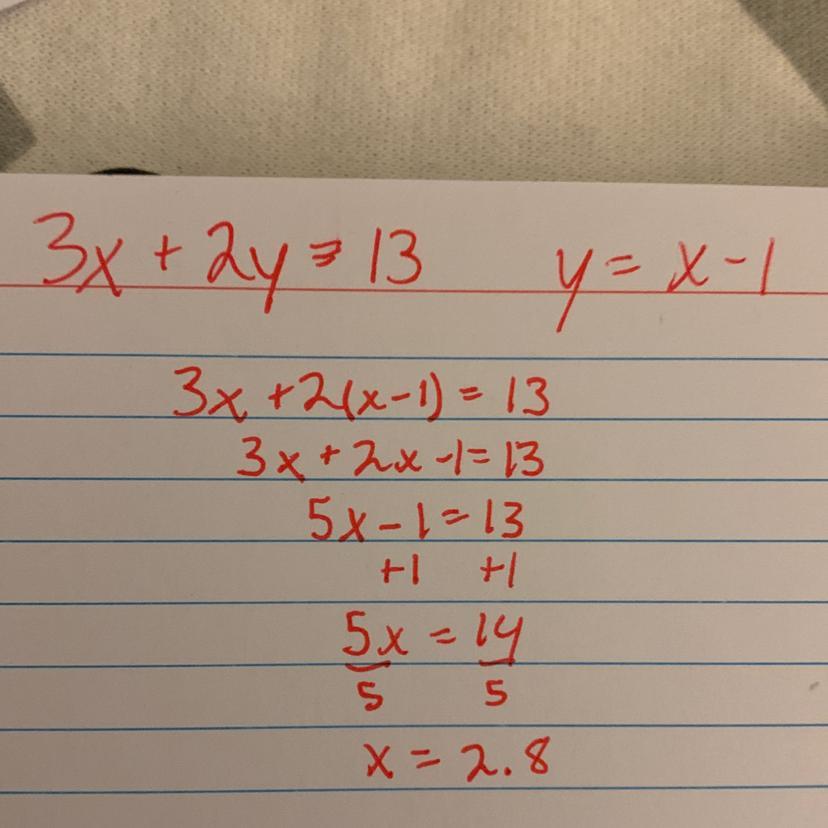 3x + 2y = 13 y = x - 1
3x + 2(x-1) = 13
3x + 2x - 1 = 13
5x - 1 = 13
+1 +1
5x = 14
5 5
x = 2.8